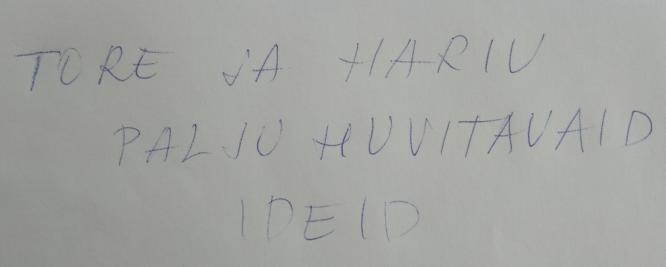 TORE jA HARIV
PALJU HUVITAVAID
IDEID